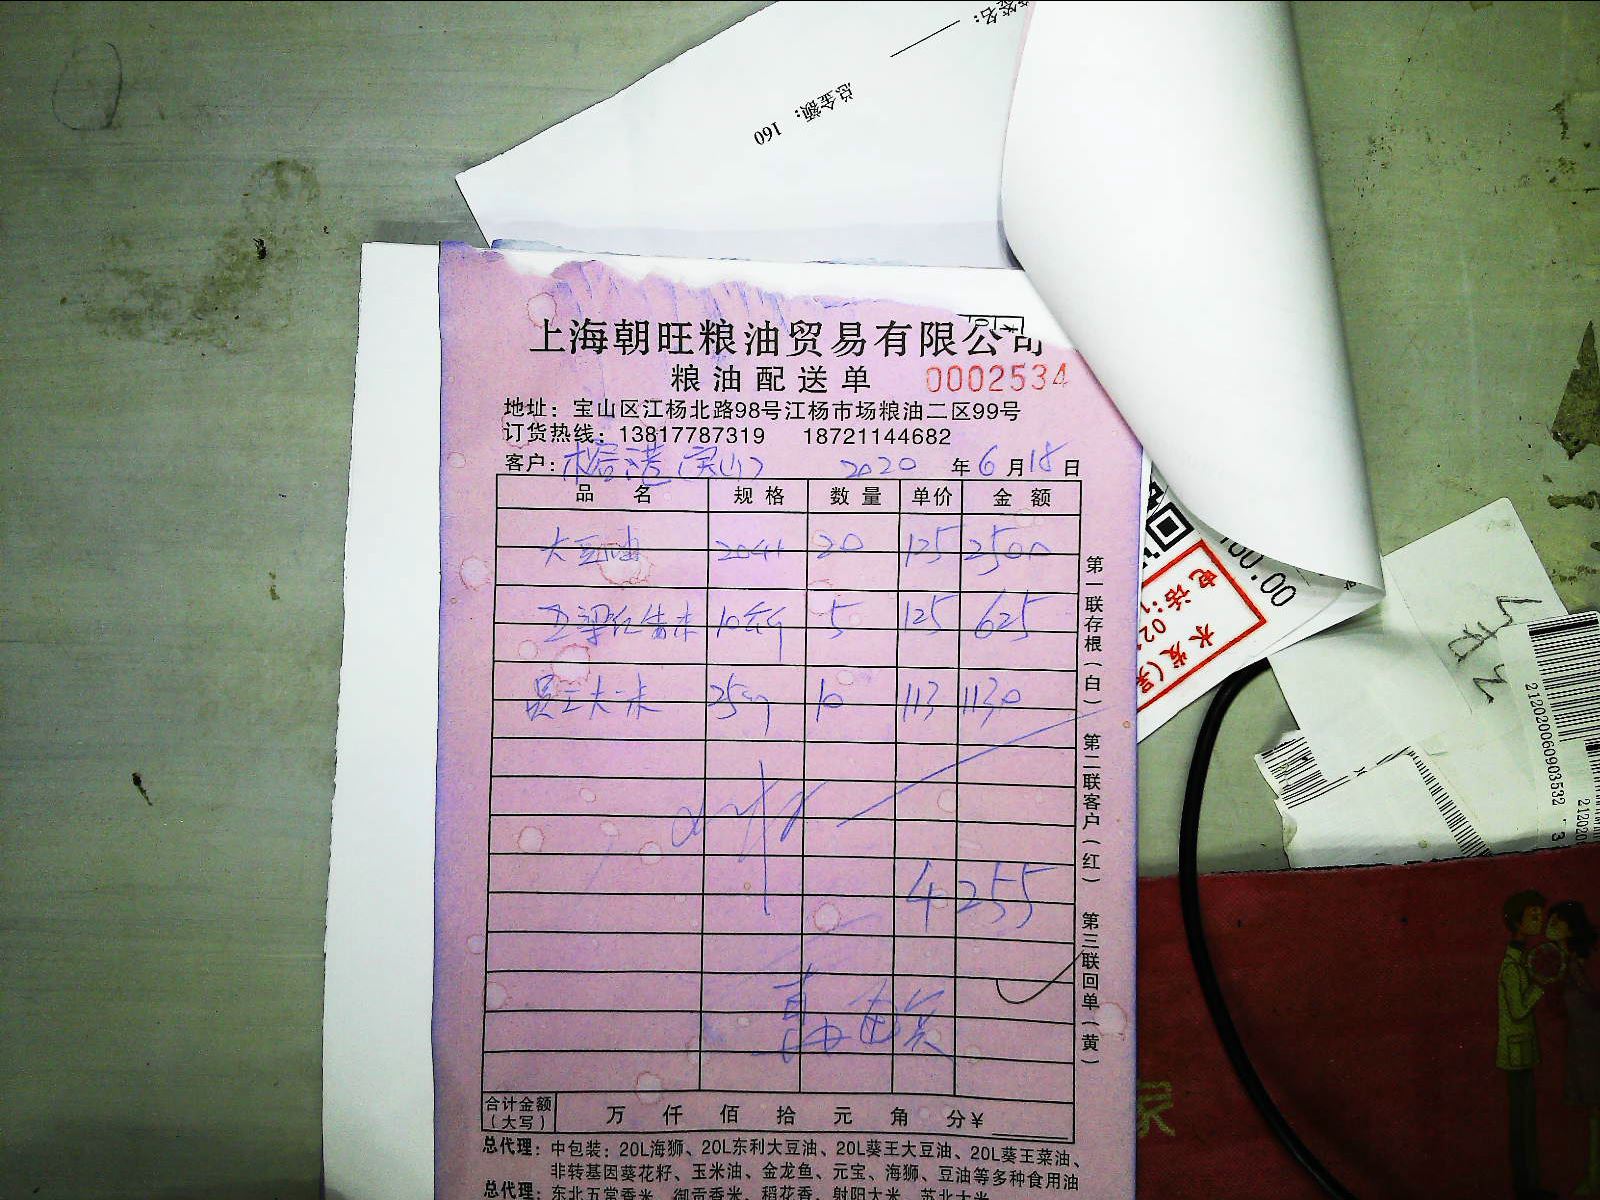 总金额： 160
上海朝旺粮油贸易有限公司
粮油配送单 0002534
地址：宝山区江杨北路98号江杨市场粮油二区99号
订货热线：13817787319 18721144682
客户：榕港(宝山) 2020 年 6 月 18 日
品 名 规 格 数 量 单价 金 额
大豆油 20 125 2500
5 125 625
大米 10 113 1130
4255
第一联存根（白） 第二联客户（红） 第三联回单（黄）
合计金额（大写） 万 仟 佰 拾 元 角 分¥
总代理：中包装：20L海狮、20L东利大豆油、20L葵王大豆油、20L葵王菜油、
非转基因葵花籽、玉米油、金龙鱼、元宝、海狮、豆油等多种食用油
总代理：东北五常香米、御贡香米、稻花香、射阳大米、苏北大米
00.00
电话:02
水发(吴
212020060903532